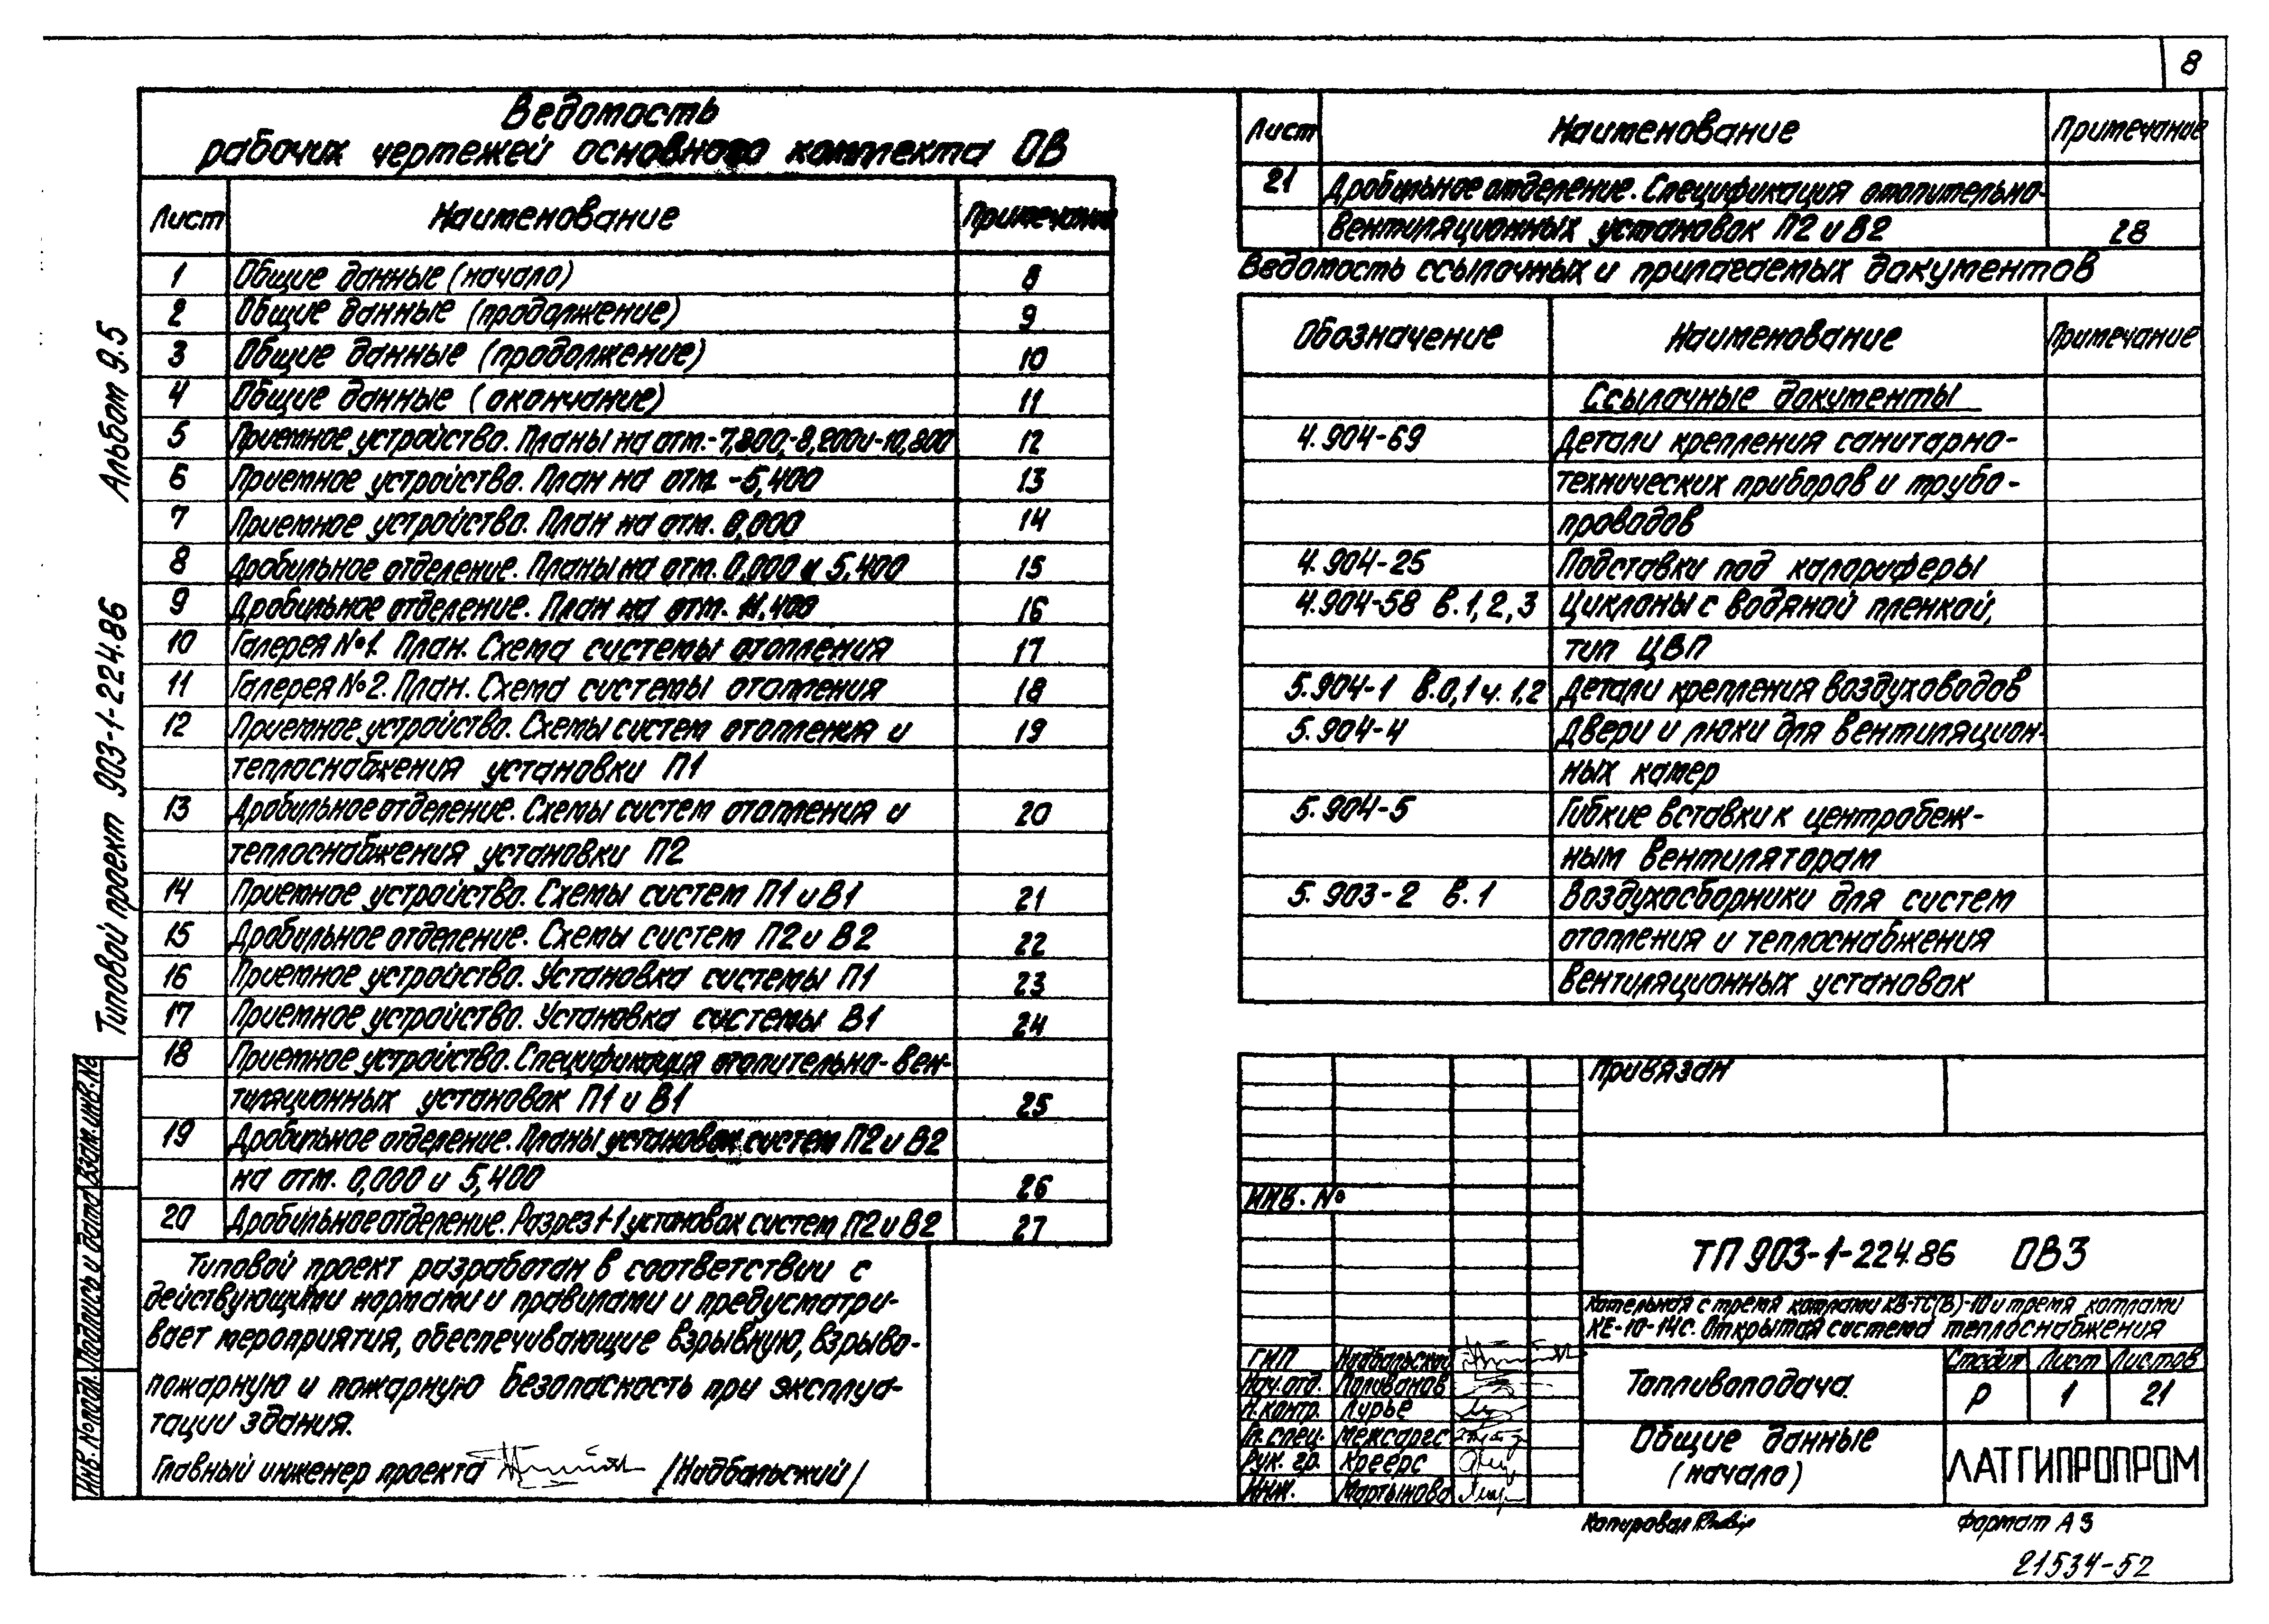 8
Ведомость
рабочих чертежей основного комплекта ОВ
Лист Наименование Примечание
1 Общие данные (начало) 8
2 Общие данные (продолжение) 9
3 Общие данные (продолжение) 10
4 Общие данные (окончание) 11
5 Приемное устройство. Планы на отм.-7,800,-8,200и-10,800 12
6 Приемное устройство. План на отм -5,400 13
7 Приемное устройство. План на отм. 0,000 14
8 Дробильное отделение. Планы на отм. 0,000 и 5,400 15
9 Дробильное отделение. План на отм. 11,400 16
10 Галерея №1. План. Схема системы отопления 17
11 Галерея №2. План. Схема системы отопления 18
12 Приемное устройство. Схемы систем отопления и 19
теплоснабжения установки П1
13 Дробильное отделение. Схемы систем отопления и 20
теплоснабжения установки П2
14 Приемное устройство. Схемы систем П1 и В1 21
15 Дробильное отделение. Схемы систем П2 и В2 22
16 Приемное устройство. Установка системы П1 23
17 Приемное устройство. Установка системы В1 24
18 Приемное устройство. Спецификация отопительно-вен-
тиляционных установок П1 и В1 25
19 Дробильное отделение. Планы установок систем П2 и В2
на отм. 0,000 и 5,400 26
20 Дробильное отделение. Разрез 1-1 установок систем П2 и В2 27
Типовой проект разработан в соответствии с
действующими нормами и правилами и предусматри-
вает мероприятия, обеспечивающие взрывную, взрыво-
пожарную и пожарную безопасность при эксплуа-
тации здания.
Главный инженер проекта /Надбальский/
Лист Наименование Примечание
21 Дробильное отделение. Спецификация отопительно-
вентиляционных установок П2 и В2 28
Ведомость ссылочных и прилагаемых документов
Обозначение Наименование Примечание
Ссылочные документы
4.904-69 Детали крепления санитарно-
технических приборов и трубо-
проводов
4.904-25 Подставки под калориферы
4.904-58 в.1,2,3 Циклоны с водяной пленкой,
тип ЦВП
5.904-1 в.0,1 ч.1,2 Детали крепления воздуховодов
5.904-4 Двери и люки для вентиляцион-
ных камер
5.904-5 Гибкие вставки к центробеж-
ным вентиляторам
5.903-2 в.1 Воздухосборники для систем
отопления и теплоснабжения
вентиляционных установок
Привязан
Инв. №
ТП 903-1-224.86 ОВ3
Котельная с тремя котлами КВ-ТС(В)-10 и тремя котлами
КЕ-10-14с. Открытая система теплоснабжения
ГИП Надбальский
Нач.отд. Полованов
Н.контр. Лурье
Гл.спец. Межсаргс
Рук. гр. Креерс
Инж. Мартынова
Топливоподача
Стадия Лист Листов
Р 1 21
Общие данные
(начало)
ЛАТГИПРОПРОМ
Копировал
Формат А3
21534-52
Альбом 9.5
Типовой проект 903-1-224.86
Взам.инв.№
Подпись и дата
Инв. № подл.